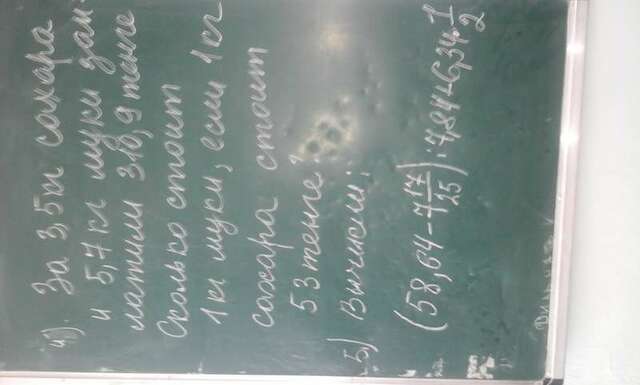 4). За 3,5кг сахара
и 5,7кг муки зап
латили 310,9тенге
Сколько стоит
1кг муки, если 1кг
сахара стоит
53тенге?
5) Вычисли:
(58,64-7 17/25):7,84+6,34·1/2